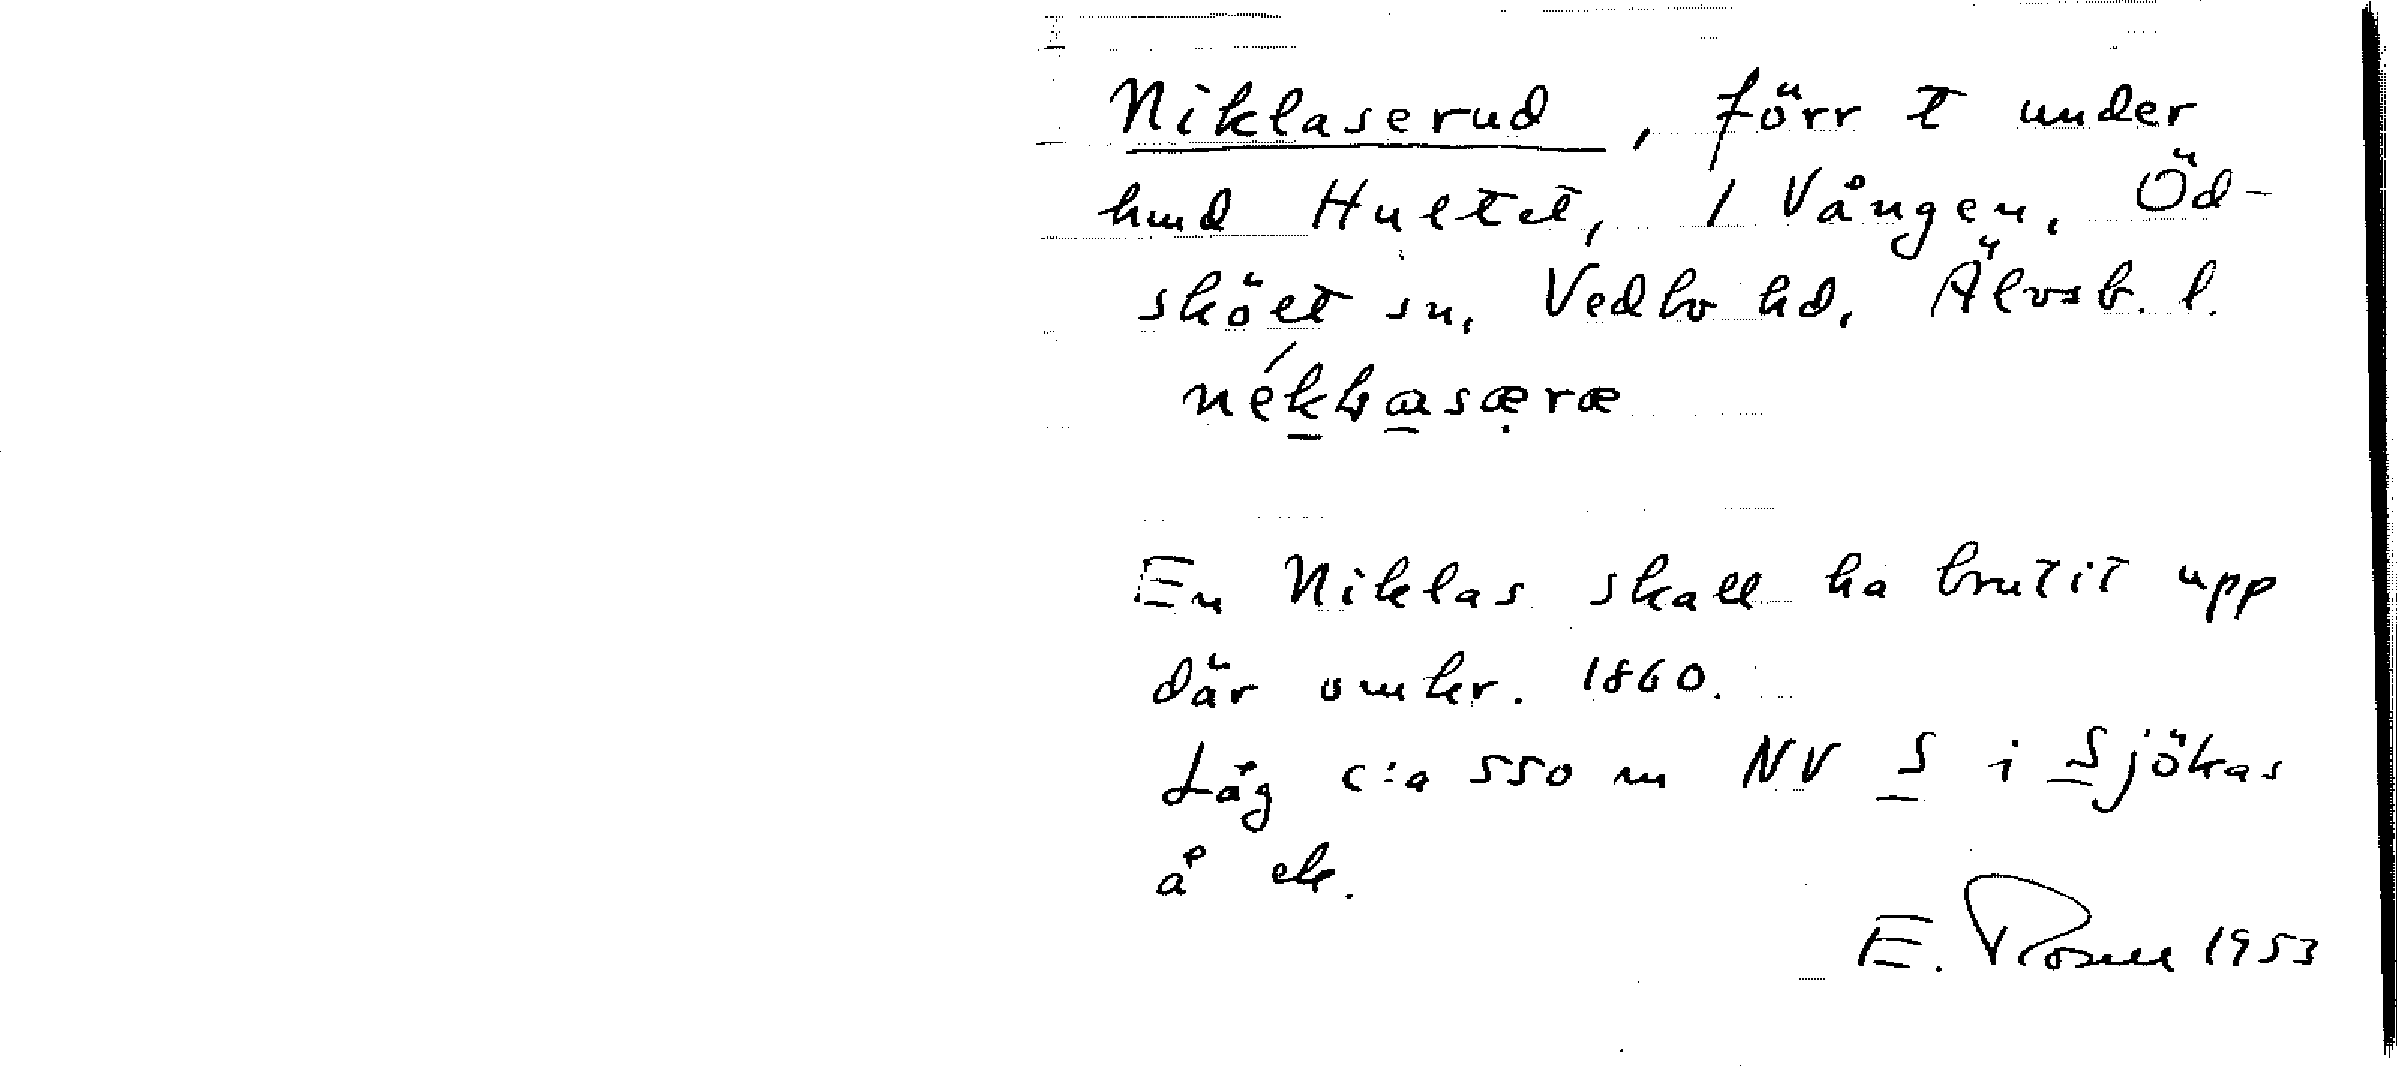 Niklaserud, förr t under
hmd Hultet, 1 Vången, Öd-
skölt sn, Vedbo hd, Älvsb. l.
En Niklas skall ha brutit upp
där omkr. 1860.
Låg c:a 550 m NV S i Sjökas
å ek.
E. Rosell 1953